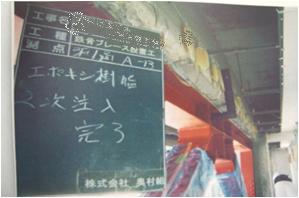 工事名
工種 鉄骨ブレース設置工
測点 A-13
エポキシ樹脂
2次注入
完了
株式会社 奥村組